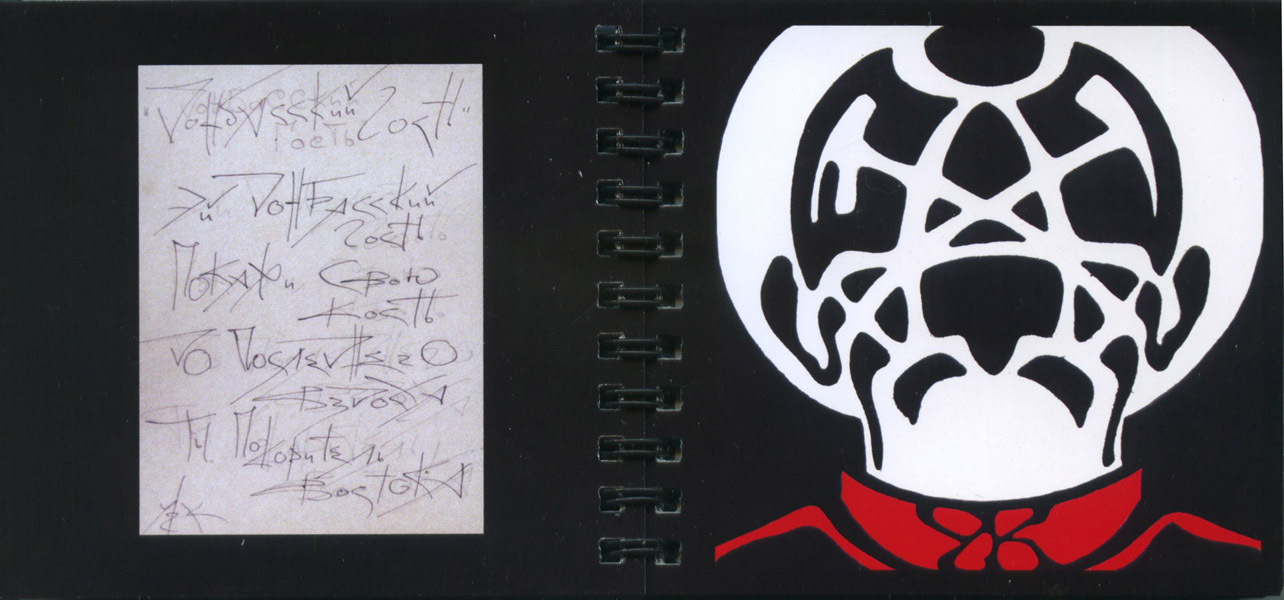 "Донбасский Гость"
Эй Донбасский
Гость
Покажи Свою
Кость
До Последнего
Вздоха
Ты Покоритель
Востока